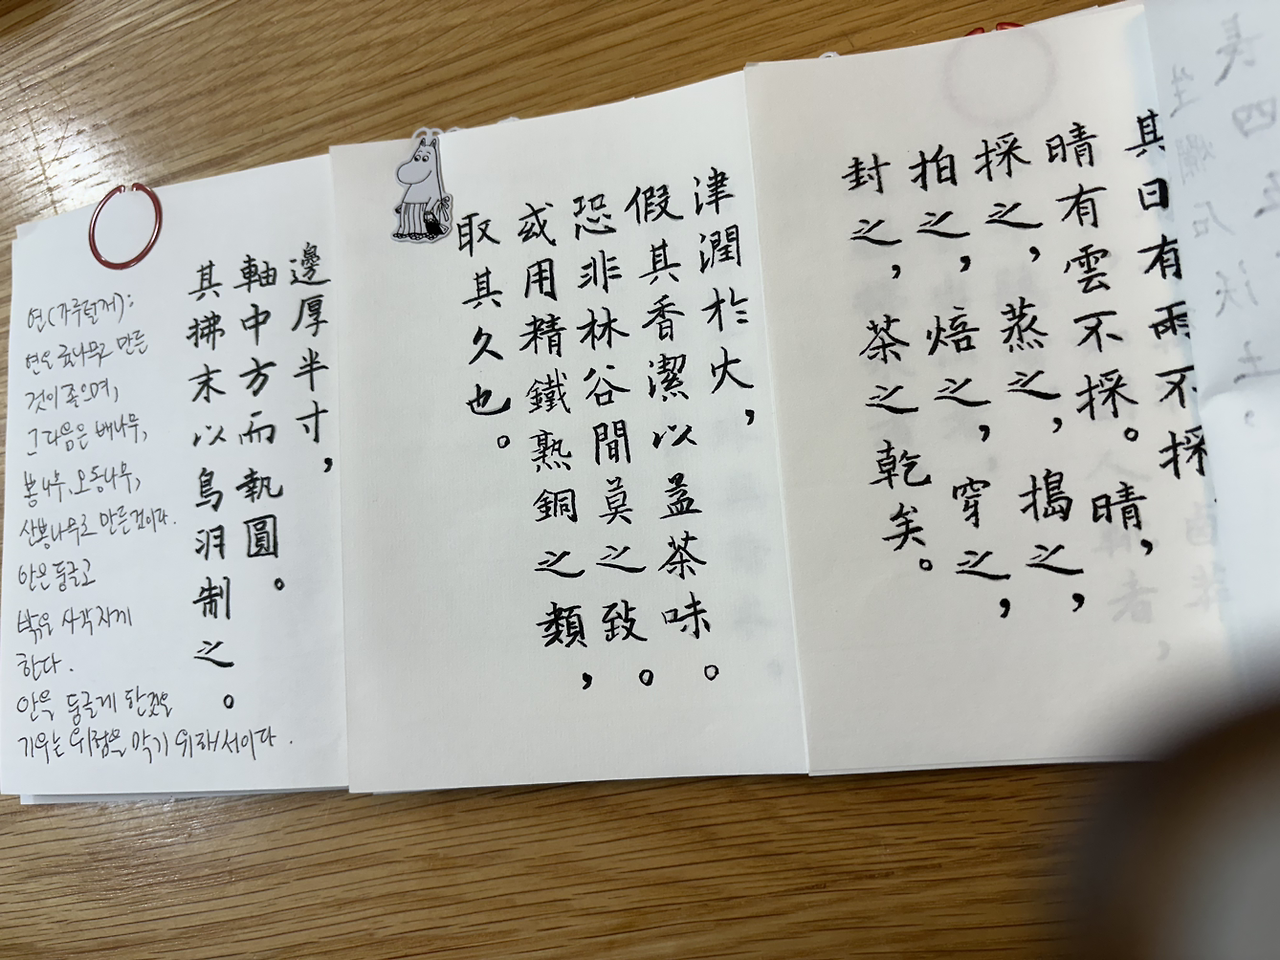 其日有雨不採
晴有雲不採。晴,
採之,蒸之,搗之,
拍之,焙之,穿之,
封之,茶之乾矣。
津潤於火,
假其香潔以益茶味。
恐非林谷間莫之致。
或用精鐵熟銅之類,
取其久也。
邊厚半寸,
軸中方而執圓。
其拂末以鳥羽制之。
연은 귤나무로 만든
것이 좋으며,
그 다음은 배나무,
뽕나무, 오동나무,
산뽕나무로 만든것이다.
안은 둥글고
밖은 사각지게
한다.
안을 둥글게 한것은
기우는 위험을 막기 위해서이다.